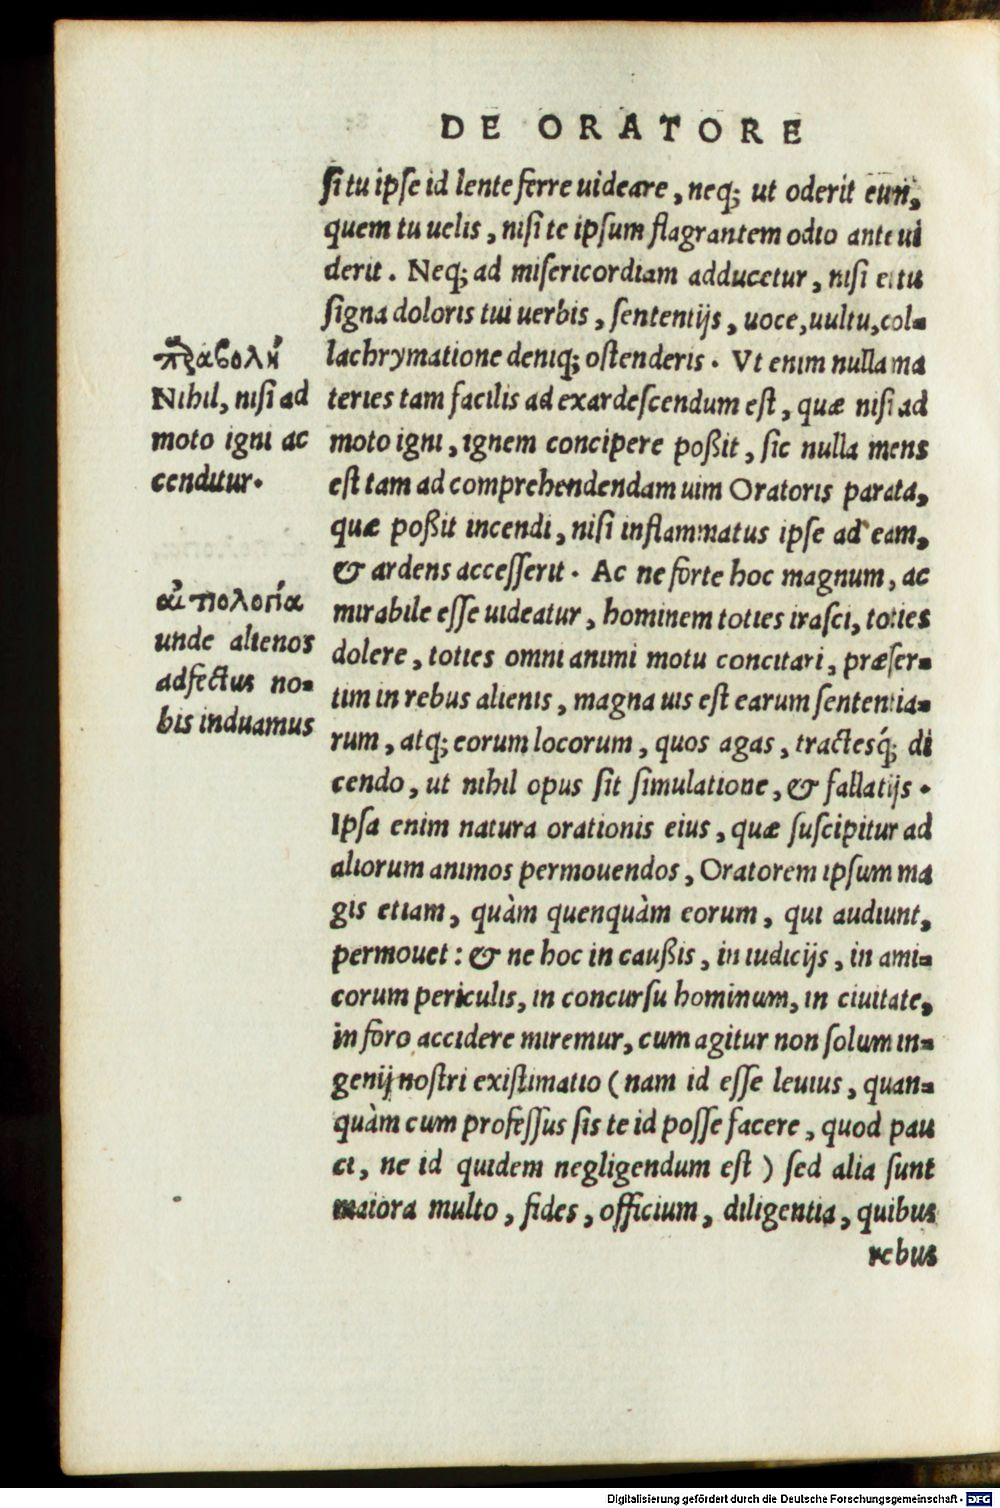 DE ORATORE
si tu ipse id lente ferre uideare, neq; ut oderit eum,
quem tu uelis, nisi te ipsum flagrantem odio ante ui
derit. Neq; ad misericordiam adducetur, nisi ei tu
signa doloris tui uerbis, sententijs, uoce, uultu, col-
lachrymatione deniq; ostenderis. Vt enim nulla ma
teries tam facilis ad exardescendum est, quæ nisi ad
moto igni, ignem concipere poßit, sic nulla mens
est tam ad comprehendendam uim Oratoris parata,
quæ poßit incendi, nisi inflammatus ipse ad eam,
& ardens accesserit. Ac ne forte hoc magnum, ac
mirabile esse uideatur, hominem toties irasci, toties
dolere, toties omni animi motu concitari, præser-
tim in rebus alienis, magna uis est earum sententia-
rum, atq; eorum locorum, quos agas, tractesq́; di
cendo, ut nihil opus sit simulatione, & fallatijs.
Ipsa enim natura orationis eius, quæ suscipitur ad
aliorum animos permouendos, Oratorem ipsum ma
gis etiam, quàm quenquàm eorum, qui audiunt,
permouet: & ne hoc in caußis, in iudicijs, in ami-
corum periculis, in concursu hominum, in ciuitate,
in foro accidere miremur, cum agitur non solum in-
genij nostri existimatio (nam id esse leuius, quan-
quàm cum professus sis te id posse facere, quod pau
ci, ne id quidem negligendum est) sed alia sunt
maiora multo, fides, officium, diligentia, quibus
rebus
παραβολὴ
Nihil, nisi ad
moto igni ac
cenditur.
ἀπολογία
unde alienos
adfectus no-
bis induamus
Digitalisierung gefördert durch die Deutsche Forschungsgemeinschaft - DFG